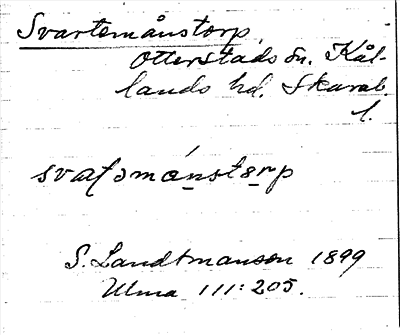 Svartemånstorp,
Otterstads sn. Kål-
lands hd. Skarab.
l.
svaʈəmónstorp
S. Landtmanson 1899
Ulma 111: 205.